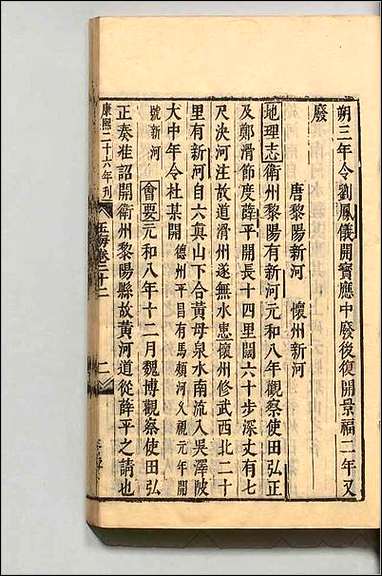 朔三年令劉鳳儀開寶應中廢後復開景福二年又
廢
唐黎陽新河　懷州新河
地理志衛州黎陽有新河元和八年觀察使田弘正
及鄭滑節度薛平開長十四里闊六十步深丈有七
尺決河注故道滑州遂無水患懷州修武西北二十
里有新河自六真山下合黃母泉水南流入吳澤陂
大中年令杜某開德州平昌有馬頰河久視元年開
號新河
會要元和八年十二月魏博觀察使田弘
正奏准詔開衛州黎陽縣故黃河道從薛平之請也
康熙二十六年刊
玉海卷二十二
二